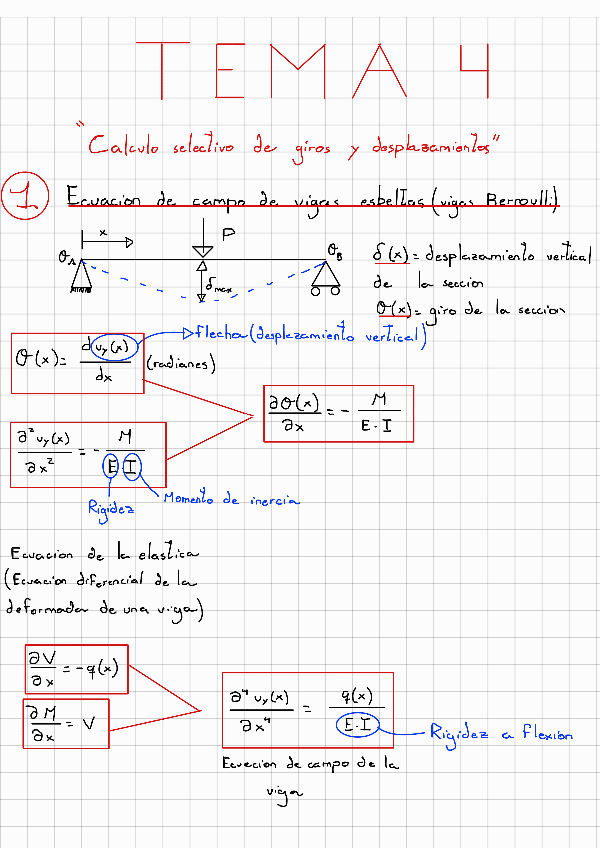 TEMA 4
"Calculo selectivo de giros y desplazamientos"
1 Ecuacion de campo de vigas esbeltas (vigas Bernoulli)
x
P
θA
θB
δmax
δ(x) = desplazamiento vertical
de la seccion
θ(x) = giro de la seccion
flecha (desplazamiento vertical)
θ(x) = d vy(x) / dx (radianes)
∂θ(x) / ∂x = - M / E·I
∂² vy(x) / ∂x² = - M / E·I
Rigidez
Momento de inercia
Ecuacion de la elastica
(Ecuacion diferencial de la
deformada de una viga)
∂V / ∂x = -q(x)
∂M / ∂x = V
∂⁴ vy(x) / ∂x⁴ = q(x) / E·I
Rigidez a flexion
Ecuecion de campo de la
viga